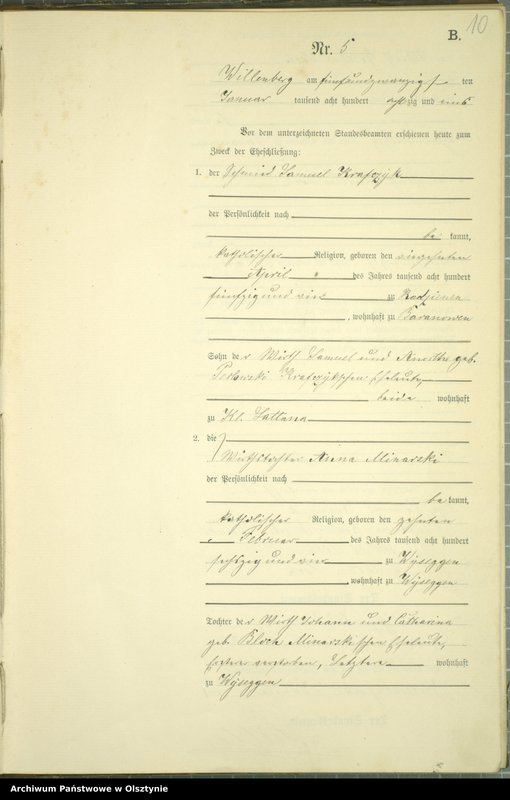 10
B.
Nr. 5
Willenberg am fünfundzwanzigsten
Januar tausend acht hundert achtzig und eins
Vor dem unterzeichneten Standesbeamten erschienen heute zum
Zweck der Eheschließung:
1. der Schmied Samuel Krafczyk
der Persönlichkeit nach
be kannt,
katholischer Religion, geboren den
April des Jahres tausend acht hundert
fünfzig und zu Radzienen
, wohnhaft zu Baranowen
Sohn der Wirth Samuel und geb.
Krafczykschen Eheleute,
beide wohnhaft
zu Kl. Lattana
2. die
Wirthstochter Anna Minarski
der Persönlichkeit nach
be kannt,
katholischer Religion, geboren den zehnten
Februar des Jahres tausend acht hundert
sechszig und zu Wyseggen
, wohnhaft zu Wyseggen
Tochter der Wirth Johann und Catharina
geb. Bloch Minarskischen Eheleute,
Erstere verstorben, Letztere wohnhaft
zu Wyseggen
Archiwum Państwowe w Olsztynie